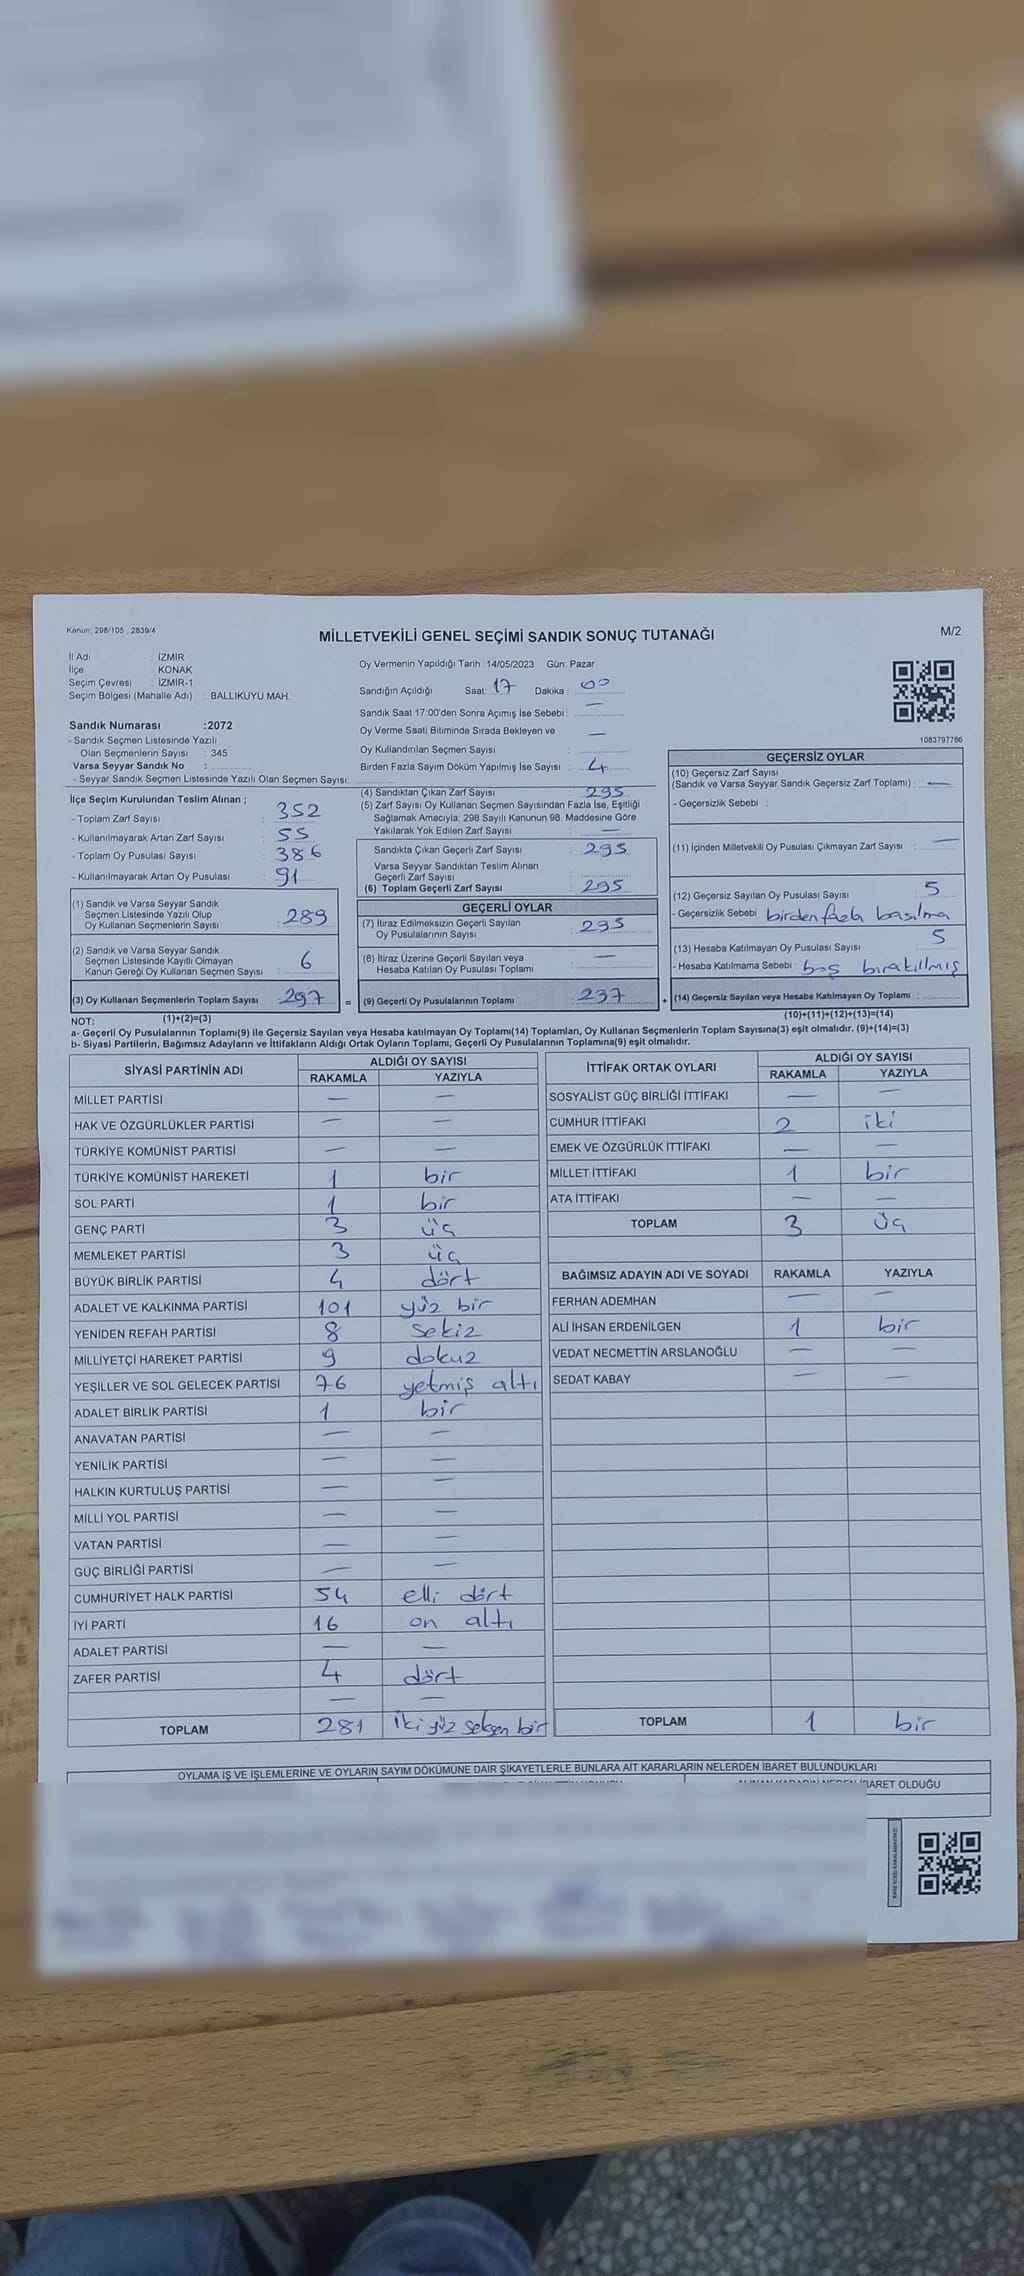 Kanun: 298/105 , 2839/4
MİLLETVEKİLİ GENEL SEÇİMİ SANDIK SONUÇ TUTANAĞI
M/2
İl Adı : İZMİR
İlçe : KONAK
Seçim Çevresi : İZMİR-1
Seçim Bölgesi (Mahalle Adı) : BALLIKUYU MAH.
Oy Vermenin Yapıldığı Tarih :14/05/2023 Gün: Pazar
Sandığın Açıldığı Saat: 17 Dakika : 00
Sandık Saat 17:00'den Sonra Açımış İse Sebebi : —
Oy Verme Saati Bitiminde Sırada Bekleyen ve
Oy Kullandırılan Seçmen Sayısı : —
Birden Fazla Sayım Döküm Yapılmış İse Sayısı : 4
1083797786
Sandık Numarası :2072
- Sandık Seçmen Listesinde Yazılı
Olan Seçmenlerin Sayısı : 345
Varsa Seyyar Sandık No :
- Seyyar Sandık Seçmen Listesinde Yazılı Olan Seçmen Sayısı:
İlçe Seçim Kurulundan Teslim Alınan ;
- Toplam Zarf Sayısı : 352
- Kullanılmayarak Artan Zarf Sayısı : 55
- Toplam Oy Pusulası Sayısı : 386
- Kullanılmayarak Artan Oy Pusulası : 91
(1) Sandık ve Varsa Seyyar Sandık
Seçmen Listesinde Yazılı Olup
Oy Kullanan Seçmenlerin Sayısı : 289
(2) Sandık ve Varsa Seyyar Sandık
Seçmen Listesinde Kayıtlı Olmayan
Kanun Gereği Oy Kullanan Seçmen Sayısı : 6
(3) Oy Kullanan Seçmenlerin Toplam Sayısı : 297
(1)+(2)=(3)
(4) Sandıktan Çıkan Zarf Sayısı : 295
(5) Zarf Sayısı Oy Kullanan Seçmen Sayısından Fazla İse, Eşitliği
Sağlamak Amacıyla, 298 Sayılı Kanunun 98. Maddesine Göre
Yakılarak Yok Edilen Zarf Sayısı : —
Sandıkta Çıkan Geçerli Zarf Sayısı : 295
Varsa Seyyar Sandıktan Teslim Alınan
Geçerli Zarf Sayısı :
(6) Toplam Geçerli Zarf Sayısı : 295
GEÇERLİ OYLAR
(7) İtiraz Edilmeksizin Geçerli Sayılan
Oy Pusulalarının Sayısı : 295
(8) İtiraz Üzerine Geçerli Sayılan veya
Hesaba Katılan Oy Pusulası Toplamı : —
= (9) Geçerli Oy Pusulalarının Toplamı : 237
GEÇERSİZ OYLAR
(10) Geçersiz Zarf Sayısı
(Sandık ve Varsa Seyyar Sandık Geçersiz Zarf Toplamı) : —
- Geçersizlik Sebebi :
(11) İçinden Milletvekili Oy Pusulası Çıkmayan Zarf Sayısı : —
(12) Geçersiz Sayılan Oy Pusulası Sayısı : 5
- Geçersizlik Sebebi : birden fazla basılma
(13) Hesaba Katılmayan Oy Pusulası Sayısı : 5
- Hesaba Katılmama Sebebi : boş bırakılmış
+ (14) Geçersiz Sayılan veya Hesaba Katılmayan Oy Toplamı :
(10)+(11)+(12)+(13)=(14)
NOT:
a- Geçerli Oy Pusulalarının Toplamı(9) ile Geçersiz Sayılan veya Hesaba katılmayan Oy Toplamı(14) Toplamları, Oy Kullanan Seçmenlerin Toplam Sayısına(3) eşit olmalıdır. (9)+(14)=(3)
b- Siyasi Partilerin, Bağımsız Adayların ve İttifakların Aldığı Ortak Oyların Toplamı, Geçerli Oy Pusulalarının Toplamına(9) eşit olmalıdır.
SİYASİ PARTİNİN ADI ALDIĞI OY SAYISI
RAKAMLA YAZIYLA
MİLLET PARTİSİ — —
HAK VE ÖZGÜRLÜKLER PARTİSİ — —
TÜRKİYE KOMÜNİST PARTİSİ — —
TÜRKİYE KOMÜNİST HAREKETİ 1 bir
SOL PARTİ 1 bir
GENÇ PARTİ 3 üç
MEMLEKET PARTİSİ 3 üç
BÜYÜK BİRLİK PARTİSİ 4 dört
ADALET VE KALKINMA PARTİSİ 101 yüz bir
YENİDEN REFAH PARTİSİ 8 sekiz
MİLLİYETÇİ HAREKET PARTİSİ 9 dokuz
YEŞİLLER VE SOL GELECEK PARTİSİ 76 yetmiş altı
ADALET BİRLİK PARTİSİ 1 bir
ANAVATAN PARTİSİ — —
YENİLİK PARTİSİ — —
HALKIN KURTULUŞ PARTİSİ — —
MİLLİ YOL PARTİSİ — —
VATAN PARTİSİ — —
GÜÇ BİRLİĞİ PARTİSİ — —
CUMHURİYET HALK PARTİSİ 54 elli dört
İYİ PARTİ 16 on altı
ADALET PARTİSİ — —
ZAFER PARTİSİ 4 dört
— —
TOPLAM 281 iki yüz seksen bir
İTTİFAK ORTAK OYLARI ALDIĞI OY SAYISI
RAKAMLA YAZIYLA
SOSYALİST GÜÇ BİRLİĞİ İTTİFAKI — —
CUMHUR İTTİFAKI 2 iki
EMEK VE ÖZGÜRLÜK İTTİFAKI — —
MİLLET İTTİFAKI 1 bir
ATA İTTİFAKI — —
TOPLAM 3 üç
BAĞIMSIZ ADAYIN ADI VE SOYADI RAKAMLA YAZIYLA
FERHAN ADEMHAN — —
ALİ İHSAN ERDENİLGEN 1 bir
VEDAT NECMETTİN ARSLANOĞLU — —
SEDAT KABAY — —
TOPLAM 1 bir
OYLAMA İŞ VE İŞLEMLERİNE VE OYLARIN SAYIM DÖKÜMÜNE DAİR ŞİKAYETLERLE BUNLARA AİT KARARLARIN NELERDEN İBARET BULUNDUKLARI
İBARET OLDUĞU